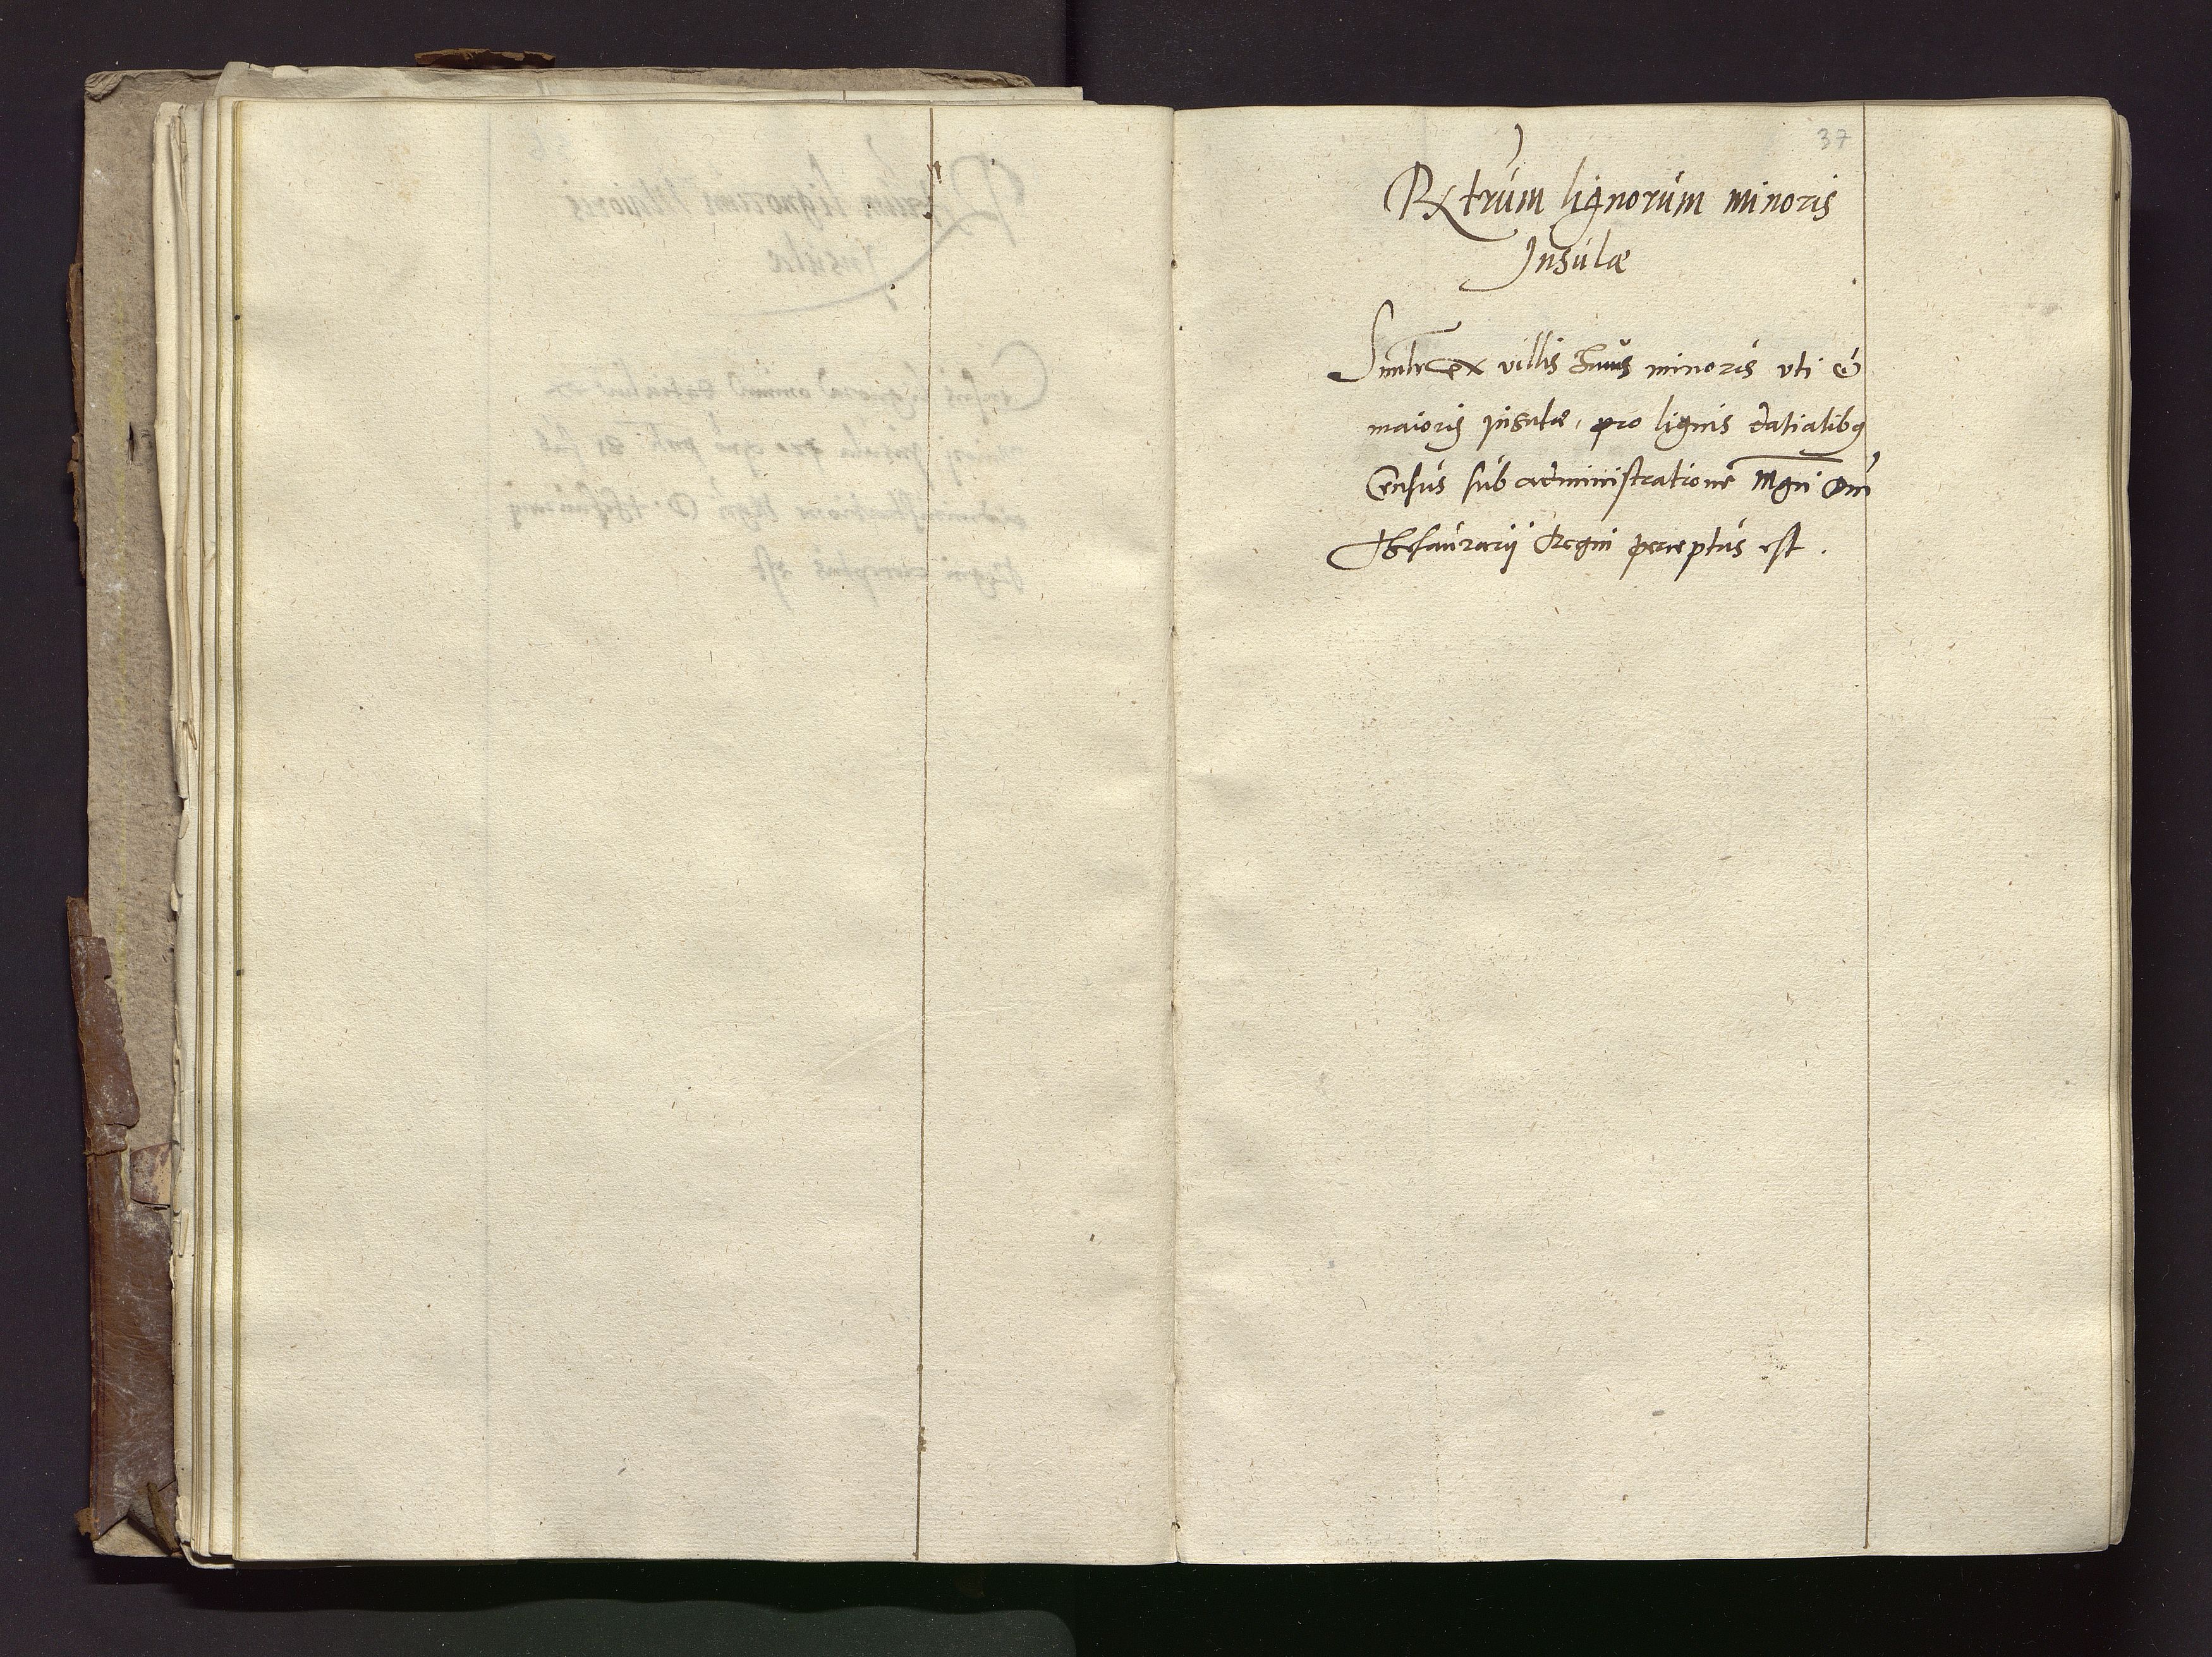 37
Rx trum lignorum minoris
Insulæ
Simlr ex villis huius minoris uti &
maioris insulæ, pro lignis datialibus
Census sub administratione Mgn Dni
Thesaurarij Regni perceptus est.